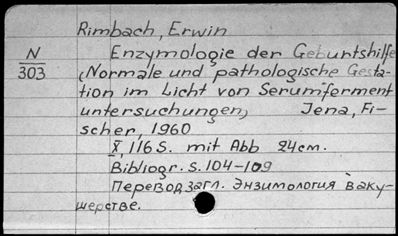 Rimbach, Erwin
N
303
Enzymologie der Geburtshilfe
(Normale und pathologische Gesta-
tion im Licht von Serumferment
untersuchungen) Jena, Fi-
scher, 1960
X, 116 S. mit Abb 24cm.
Bibliogr. S. 104-109
Перевод загл. Энзимология в аку-
шерстве.